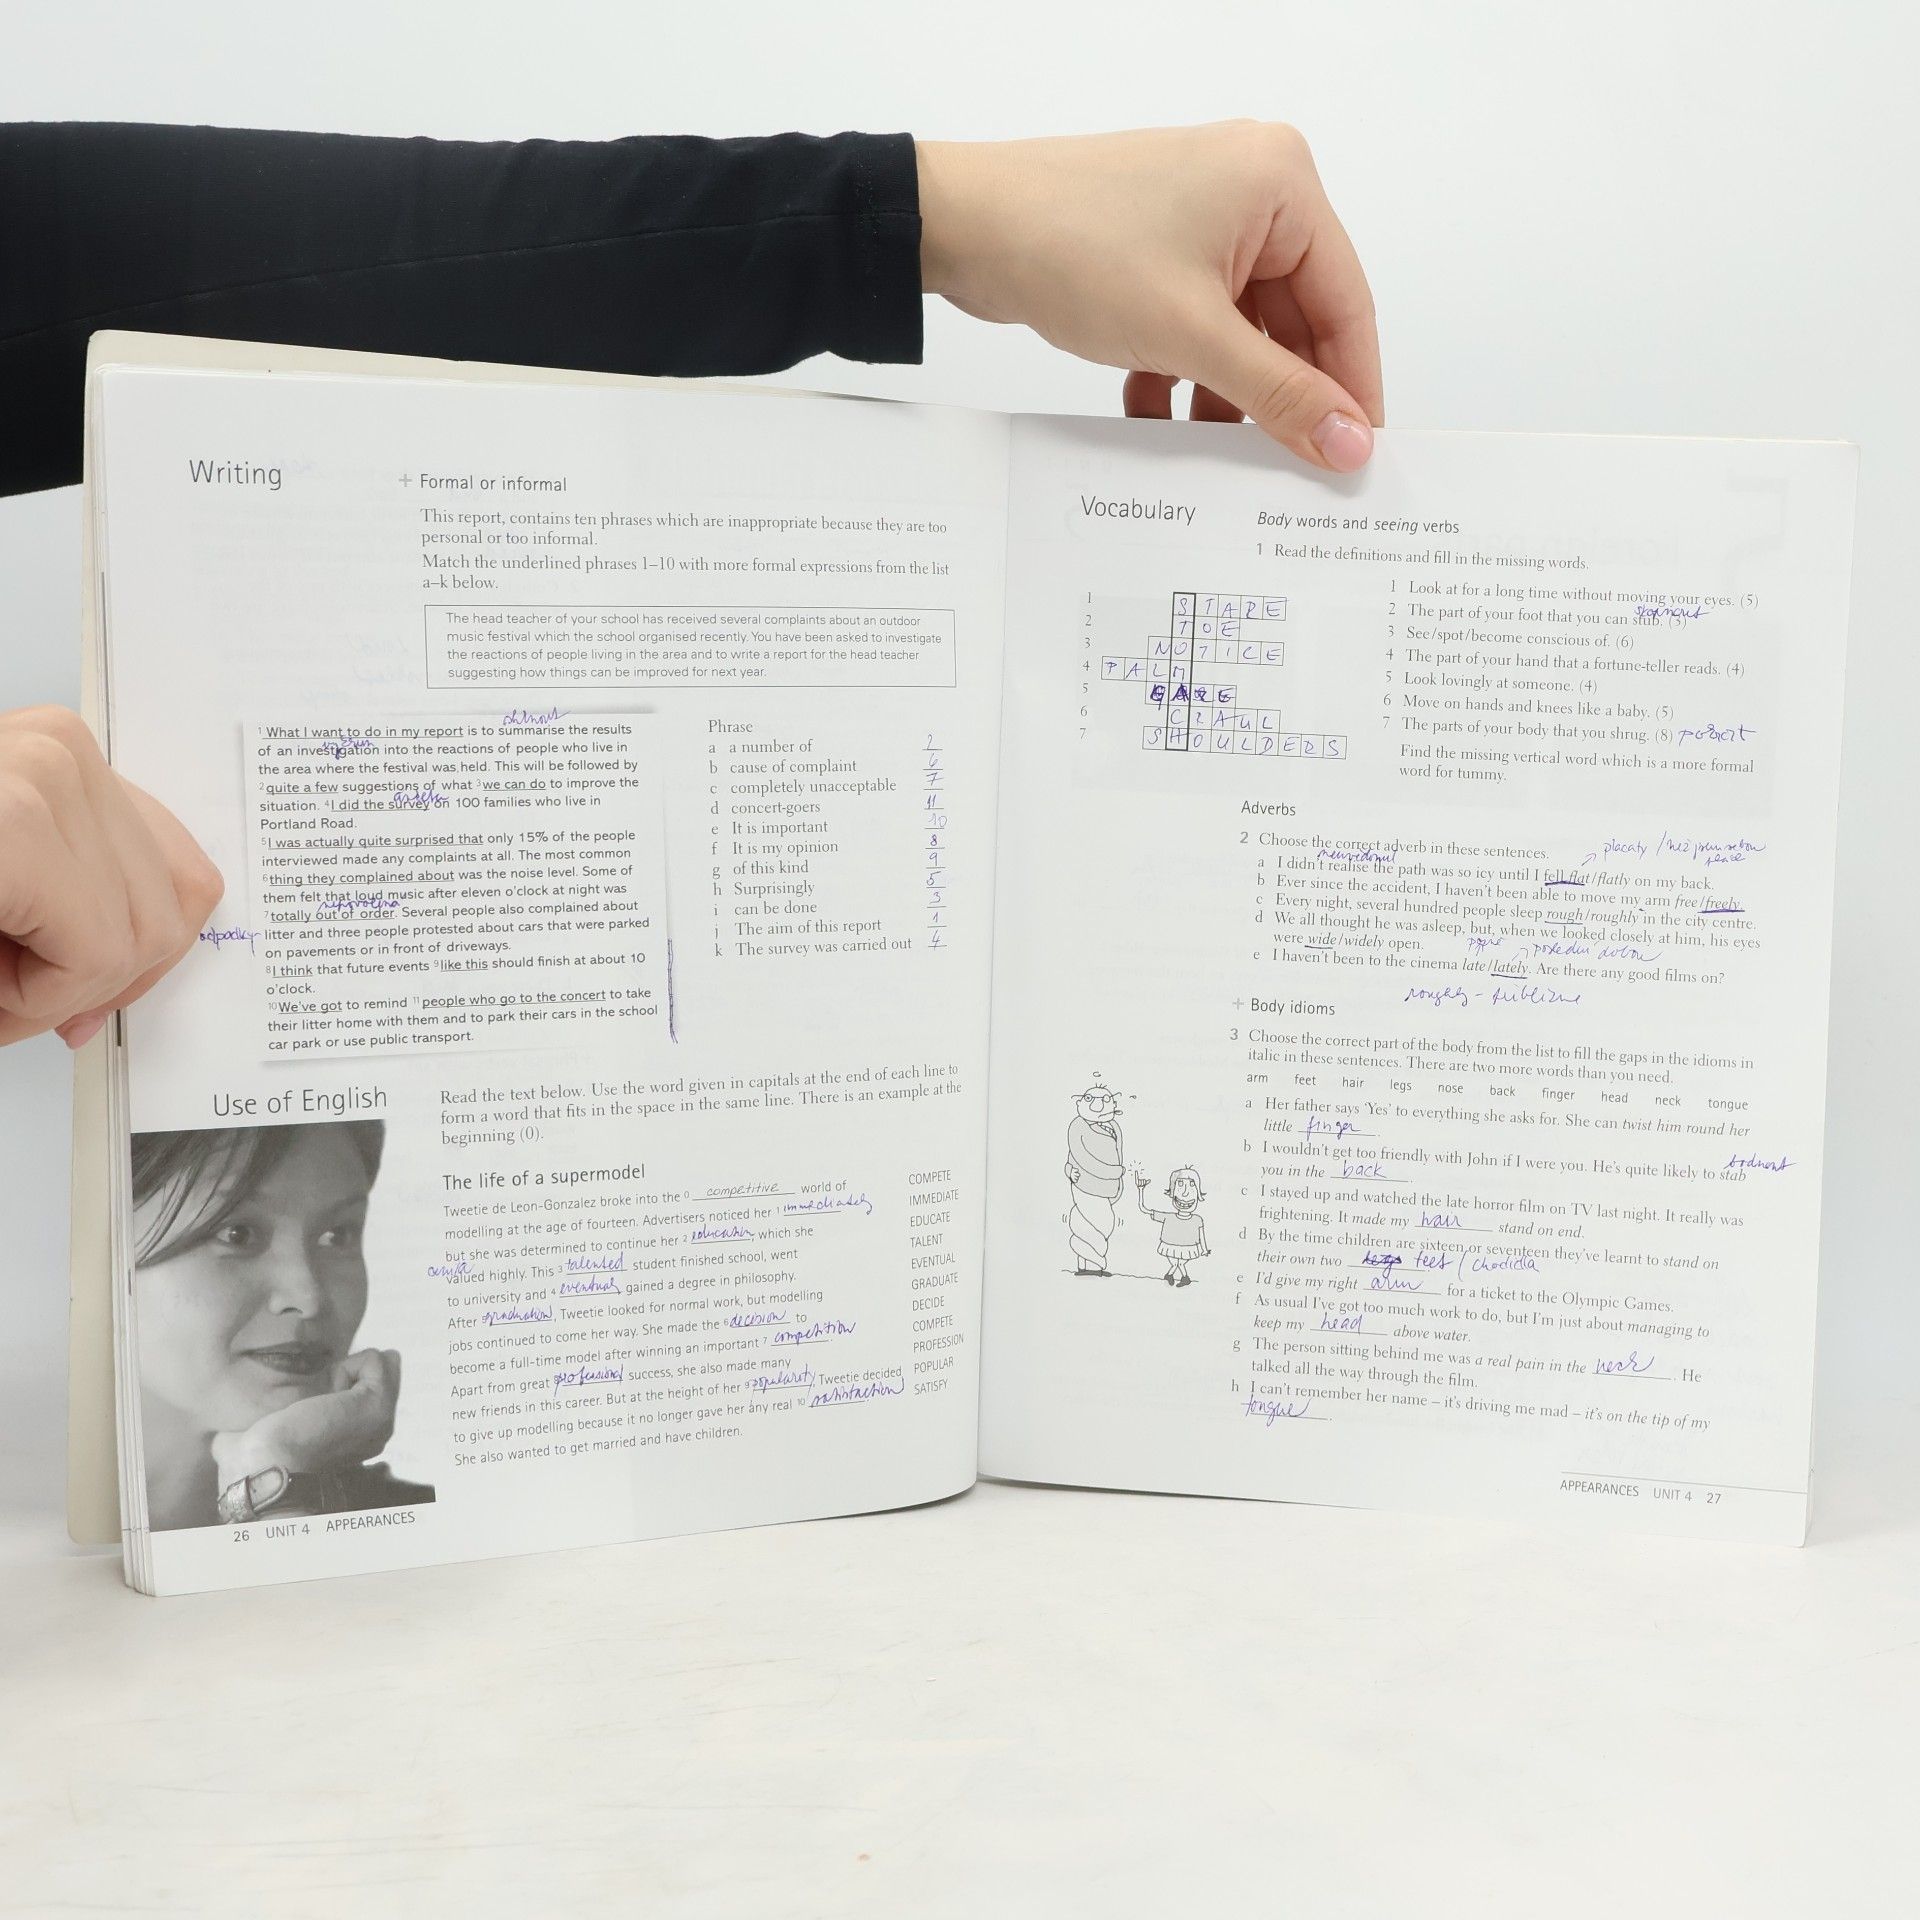 Writing
+ Formal or informal
This report, contains ten phrases which are inappropriate because they are too
personal or too informal.
Match the underlined phrases 1–10 with more formal expressions from the list
a–k below.
The head teacher of your school has received several complaints about an outdoor
music festival which the school organised recently. You have been asked to investigate
the reactions of people living in the area and to write a report for the head teacher
suggesting how things can be improved for next year.
1 What I want to do in my report is to summarise the results
of an investigation into the reactions of people who live in
the area where the festival was held. This will be followed by
2 quite a few suggestions of what 3 we can do to improve the
situation. 4 I did the survey on 100 families who live in
Portland Road.
5 I was actually quite surprised that only 15% of the people
interviewed made any complaints at all. The most common
6 thing they complained about was the noise level. Some of
them felt that loud music after eleven o'clock at night was
7 totally out of order. Several people also complained about
litter and three people protested about cars that were parked
on pavements or in front of driveways.
8 I think that future events 9 like this should finish at about 10
o'clock.
10 We've got to remind 11 people who go to the concert to take
their litter home with them and to park their cars in the school
car park or use public transport.
odpadky
Phrase
a a number of 2
b cause of complaint 6
c completely unacceptable 7
d concert-goers 11
e It is important 10
f It is my opinion 8
g of this kind 9
h Surprisingly 5
i can be done 3
j The aim of this report 1
k The survey was carried out 4
Use of English
Read the text below. Use the word given in capitals at the end of each line to
form a word that fits in the space in the same line. There is an example at the
beginning (0).
The life of a supermodel
Tweetie de Leon-Gonzalez broke into the 0 competitive world of COMPETE
modelling at the age of fourteen. Advertisers noticed her 1 immediately IMMEDIATE
but she was determined to continue her 2 education, which she EDUCATE
valued highly. This 3 talented student finished school, went TALENT
to university and 4 eventualy gained a degree in philosophy. EVENTUAL
After 5 graduation, Tweetie looked for normal work, but modelling GRADUATE
jobs continued to come her way. She made the 6 decision to DECIDE
become a full-time model after winning an important 7 competition. COMPETE
Apart from great 8 professional success, she also made many PROFESSION
new friends in this career. But at the height of her 9 popularity, Tweetie decided POPULAR
to give up modelling because it no longer gave her any real 10 satisfaction. SATISFY
She also wanted to get married and have children.
26 UNIT 4 APPEARANCES
Vocabulary
Body words and seeing verbs
1 Read the definitions and fill in the missing words.
1 STARE
2 TOE
3 NOTICE
4 PALM
5 GAZE
6 CRAUL
7 SHOULDERS
1 Look at for a long time without moving your eyes. (5)
2 The part of your foot that you can stub. (3)
3 See/spot/become conscious of. (6)
4 The part of your hand that a fortune-teller reads. (4)
5 Look lovingly at someone. (4)
6 Move on hands and knees like a baby. (5)
7 The parts of your body that you shrug. (8)
Find the missing vertical word which is a more formal
word for tummy.
Adverbs
2 Choose the correct adverb in these sentences.
a I didn't realise the path was so icy until I fell flat/flatly on my back.
b Ever since the accident, I haven't been able to move my arm free/freely.
c Every night, several hundred people sleep rough/roughly in the city centre.
d We all thought he was asleep, but, when we looked closely at him, his eyes
were wide/widely open.
e I haven't been to the cinema late/lately. Are there any good films on?
+ Body idioms
3 Choose the correct part of the body from the list to fill the gaps in the idioms in
italic in these sentences. There are two more words than you need.
arm feet hair legs nose back finger head neck tongue
a Her father says 'Yes' to everything she asks for. She can twist him round her
little finger.
b I wouldn't get too friendly with John if I were you. He's quite likely to stab
you in the back.
c I stayed up and watched the late horror film on TV last night. It really was
frightening. It made my hair stand on end.
d By the time children are sixteen or seventeen they've learnt to stand on
their own two feet / chodidla
e I'd give my right arm for a ticket to the Olympic Games.
f As usual I've got too much work to do, but I'm just about managing to
keep my head above water.
g The person sitting behind me was a real pain in the neck. He
talked all the way through the film.
h I can't remember her name – it's driving me mad – it's on the tip of my
tongue.
APPEARANCES UNIT 4 27